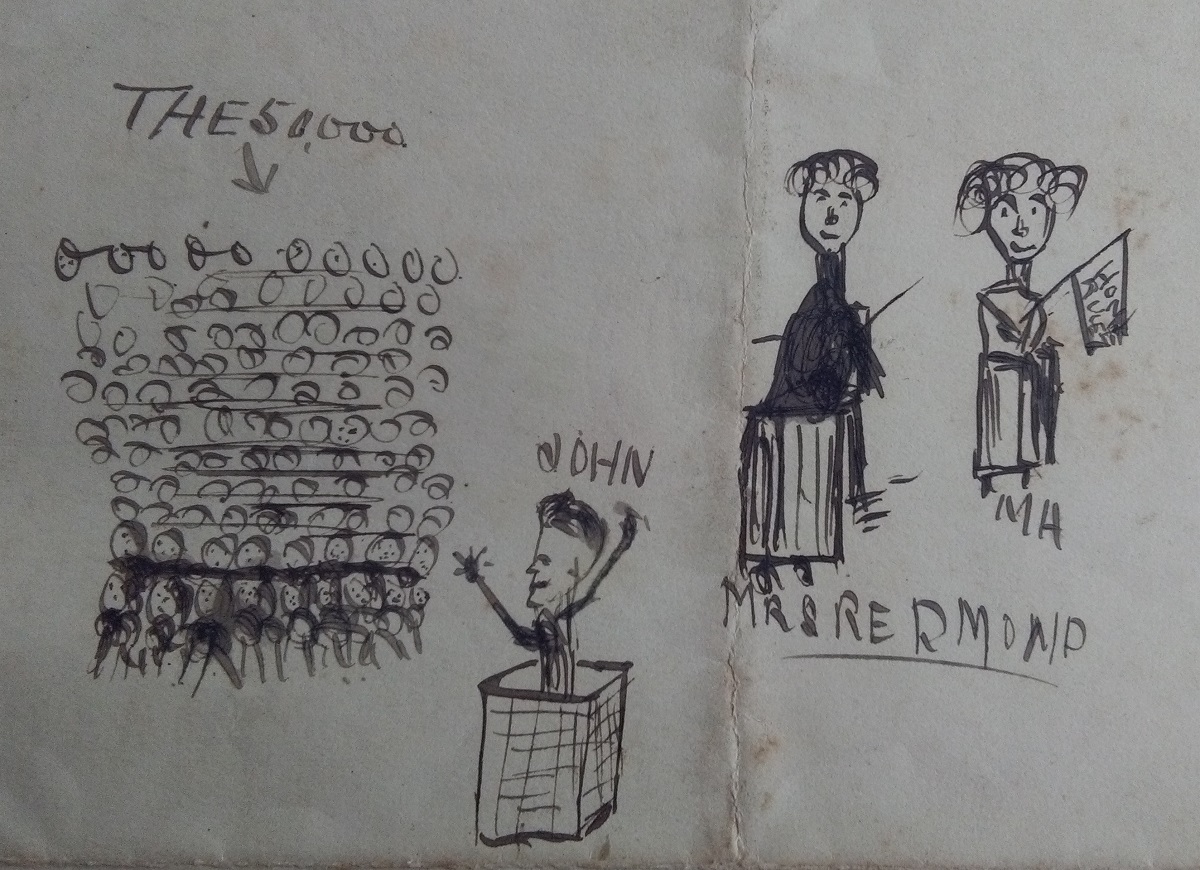 THE 50,000
JOHN
MA
MRS REDMOND